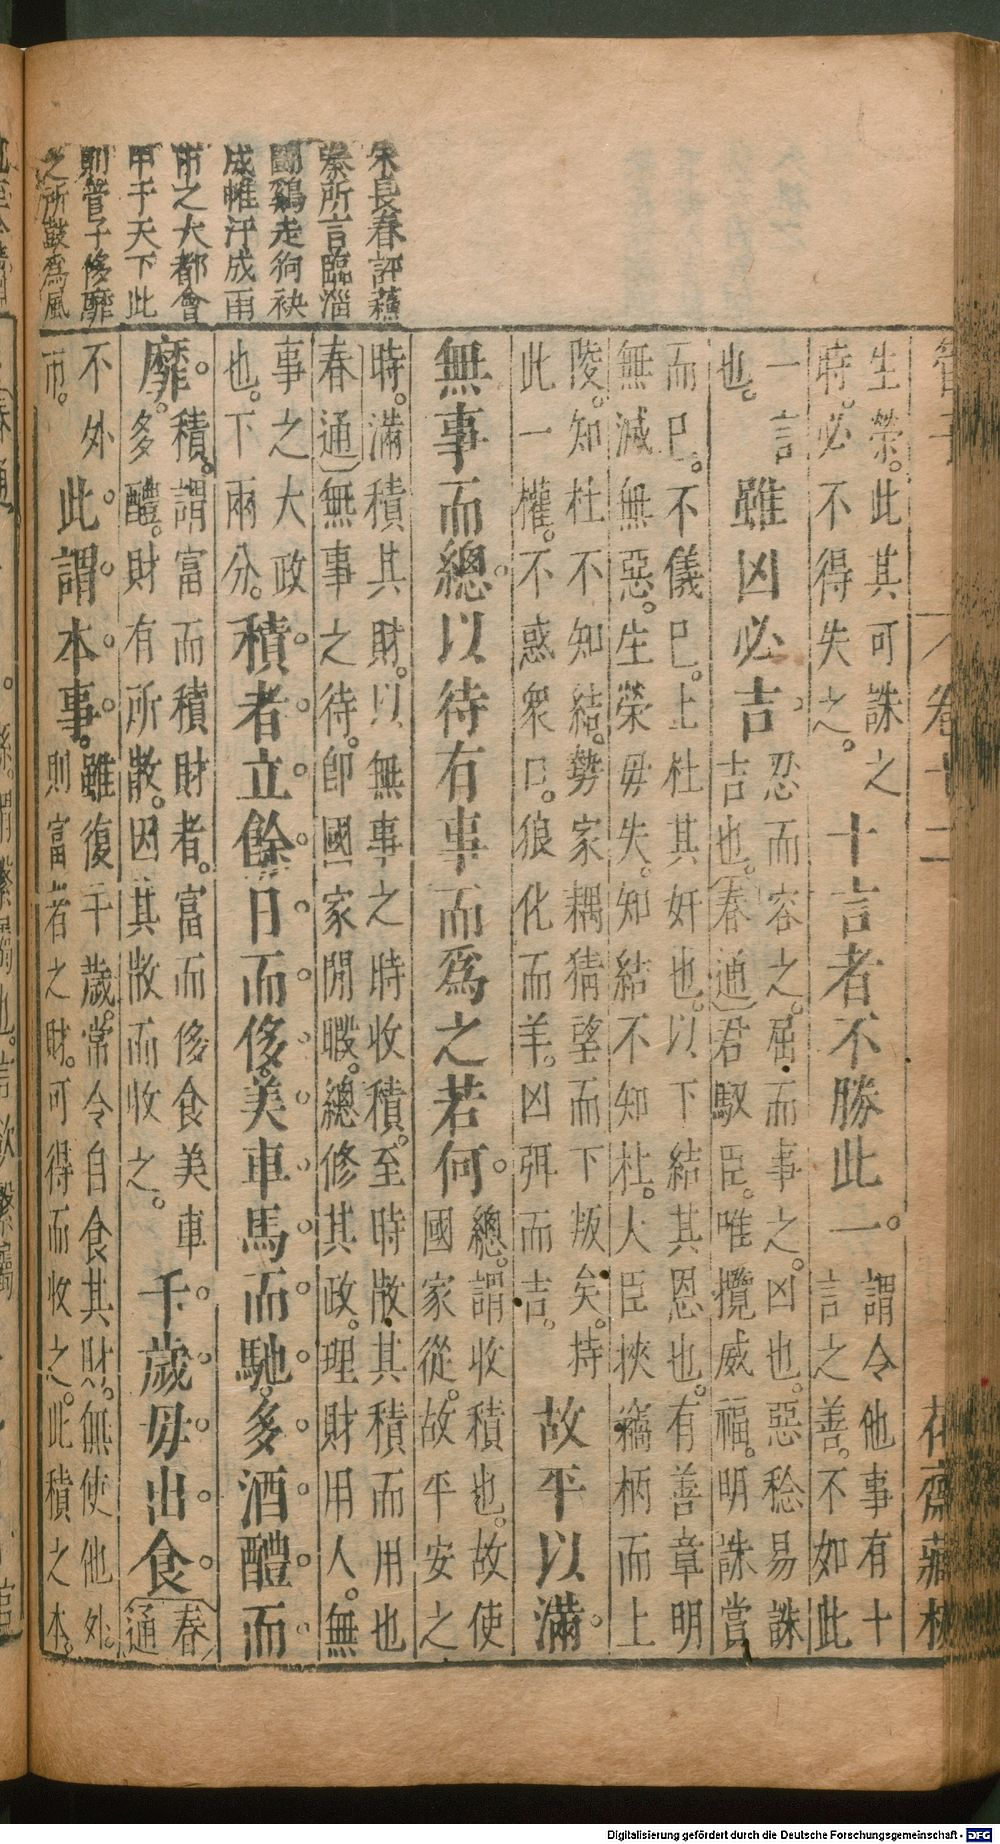 管子 卷十二 花齋藏板
生榮。此其可誅之
時。必不得失之。
十言者不勝此一。
謂令他事有十
言之善。不如此
一言
也。
雖凶必吉。
忍而容之。屈而事之。凶也。惡稔易誅
吉也。(春通)君馭臣。唯攬威福。明誅當
而已。不儀已。上杜其奸也。以下結其恩也。有善章明
無滅無惡。生榮毋失。知結不知杜。大臣挾竊柄而上
陵。知杜不知結。勢家耦猜望而下叛矣。持
此一權。不惑衆口。狼化而羊。凶弭而吉。
故平以滿。
無事而總。以待有事而爲之若何。
總。謂收積也。故使
國家從。故平安之
時。滿積其財。以無事之時收積。至時散其積而用也
(春通)無事之待。即國家閒暇。總修其政。理財用人。無
事之大政
也。下兩分。
積者立餘日而侈。美車馬而馳。多酒醴而
靡。
積。謂富而積財者。富而侈食美車
多醴。財有所散。因其散而收之。
千歲毋出食。
(春
通)
不外
市。
此謂本事。
雖復千歲。常令自食其財。無使他外。
則富者之財。可得而收之。此積之本。
朱長春評蘇
秦所言臨淄
鬭鷄走狗袂
成帷汗成雨
市之大都會
甲于天下此
則管子侈靡
之所鼓爲風
Digitalisierung gefördert durch die Deutsche Forschungsgemeinschaft - DFG